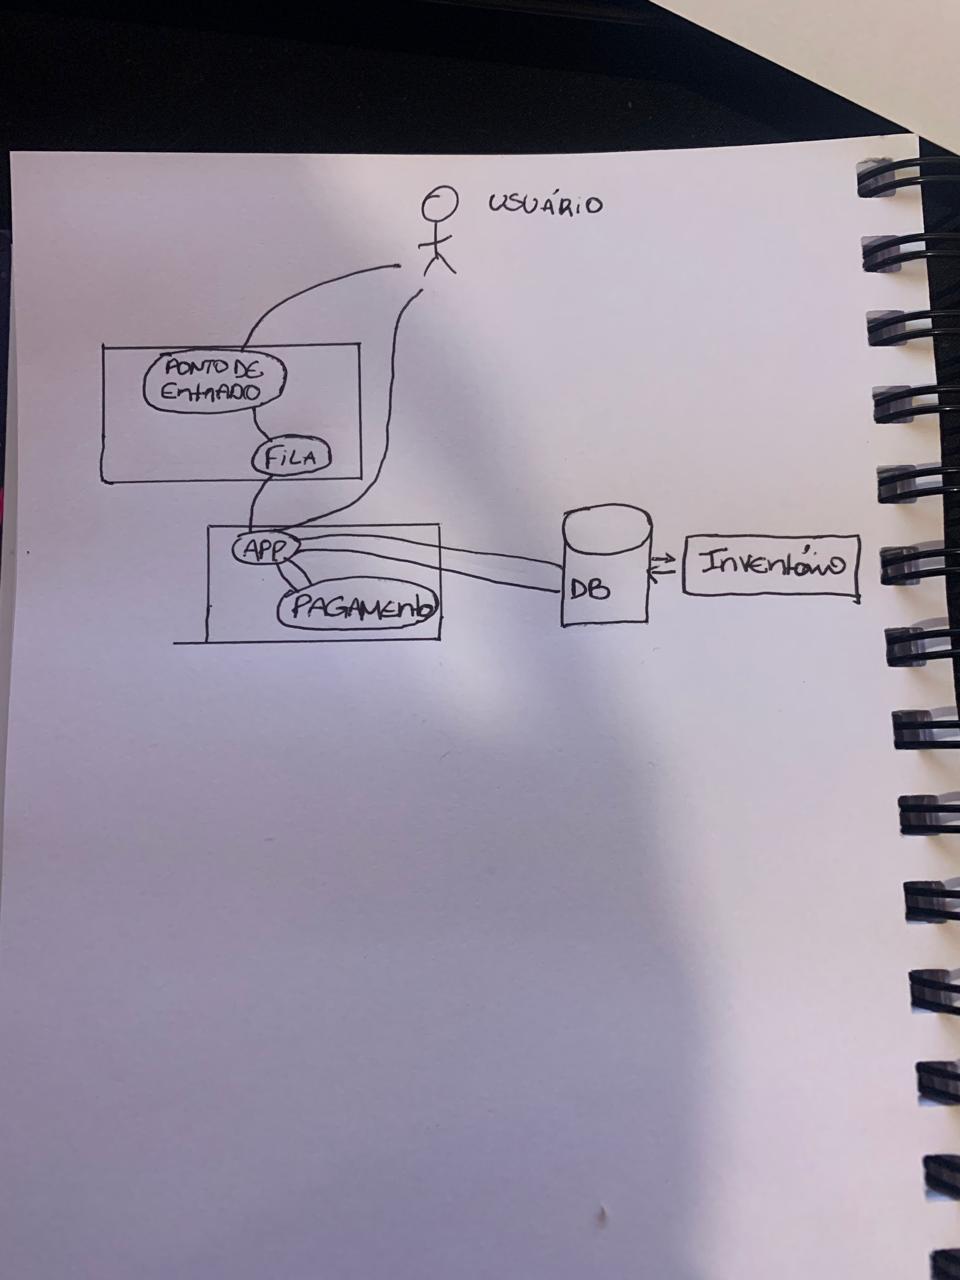 USUÁRIO
PONTO DE
EntRADO
FiLA
APP
PAGAMEnto
DB
InVEntáio